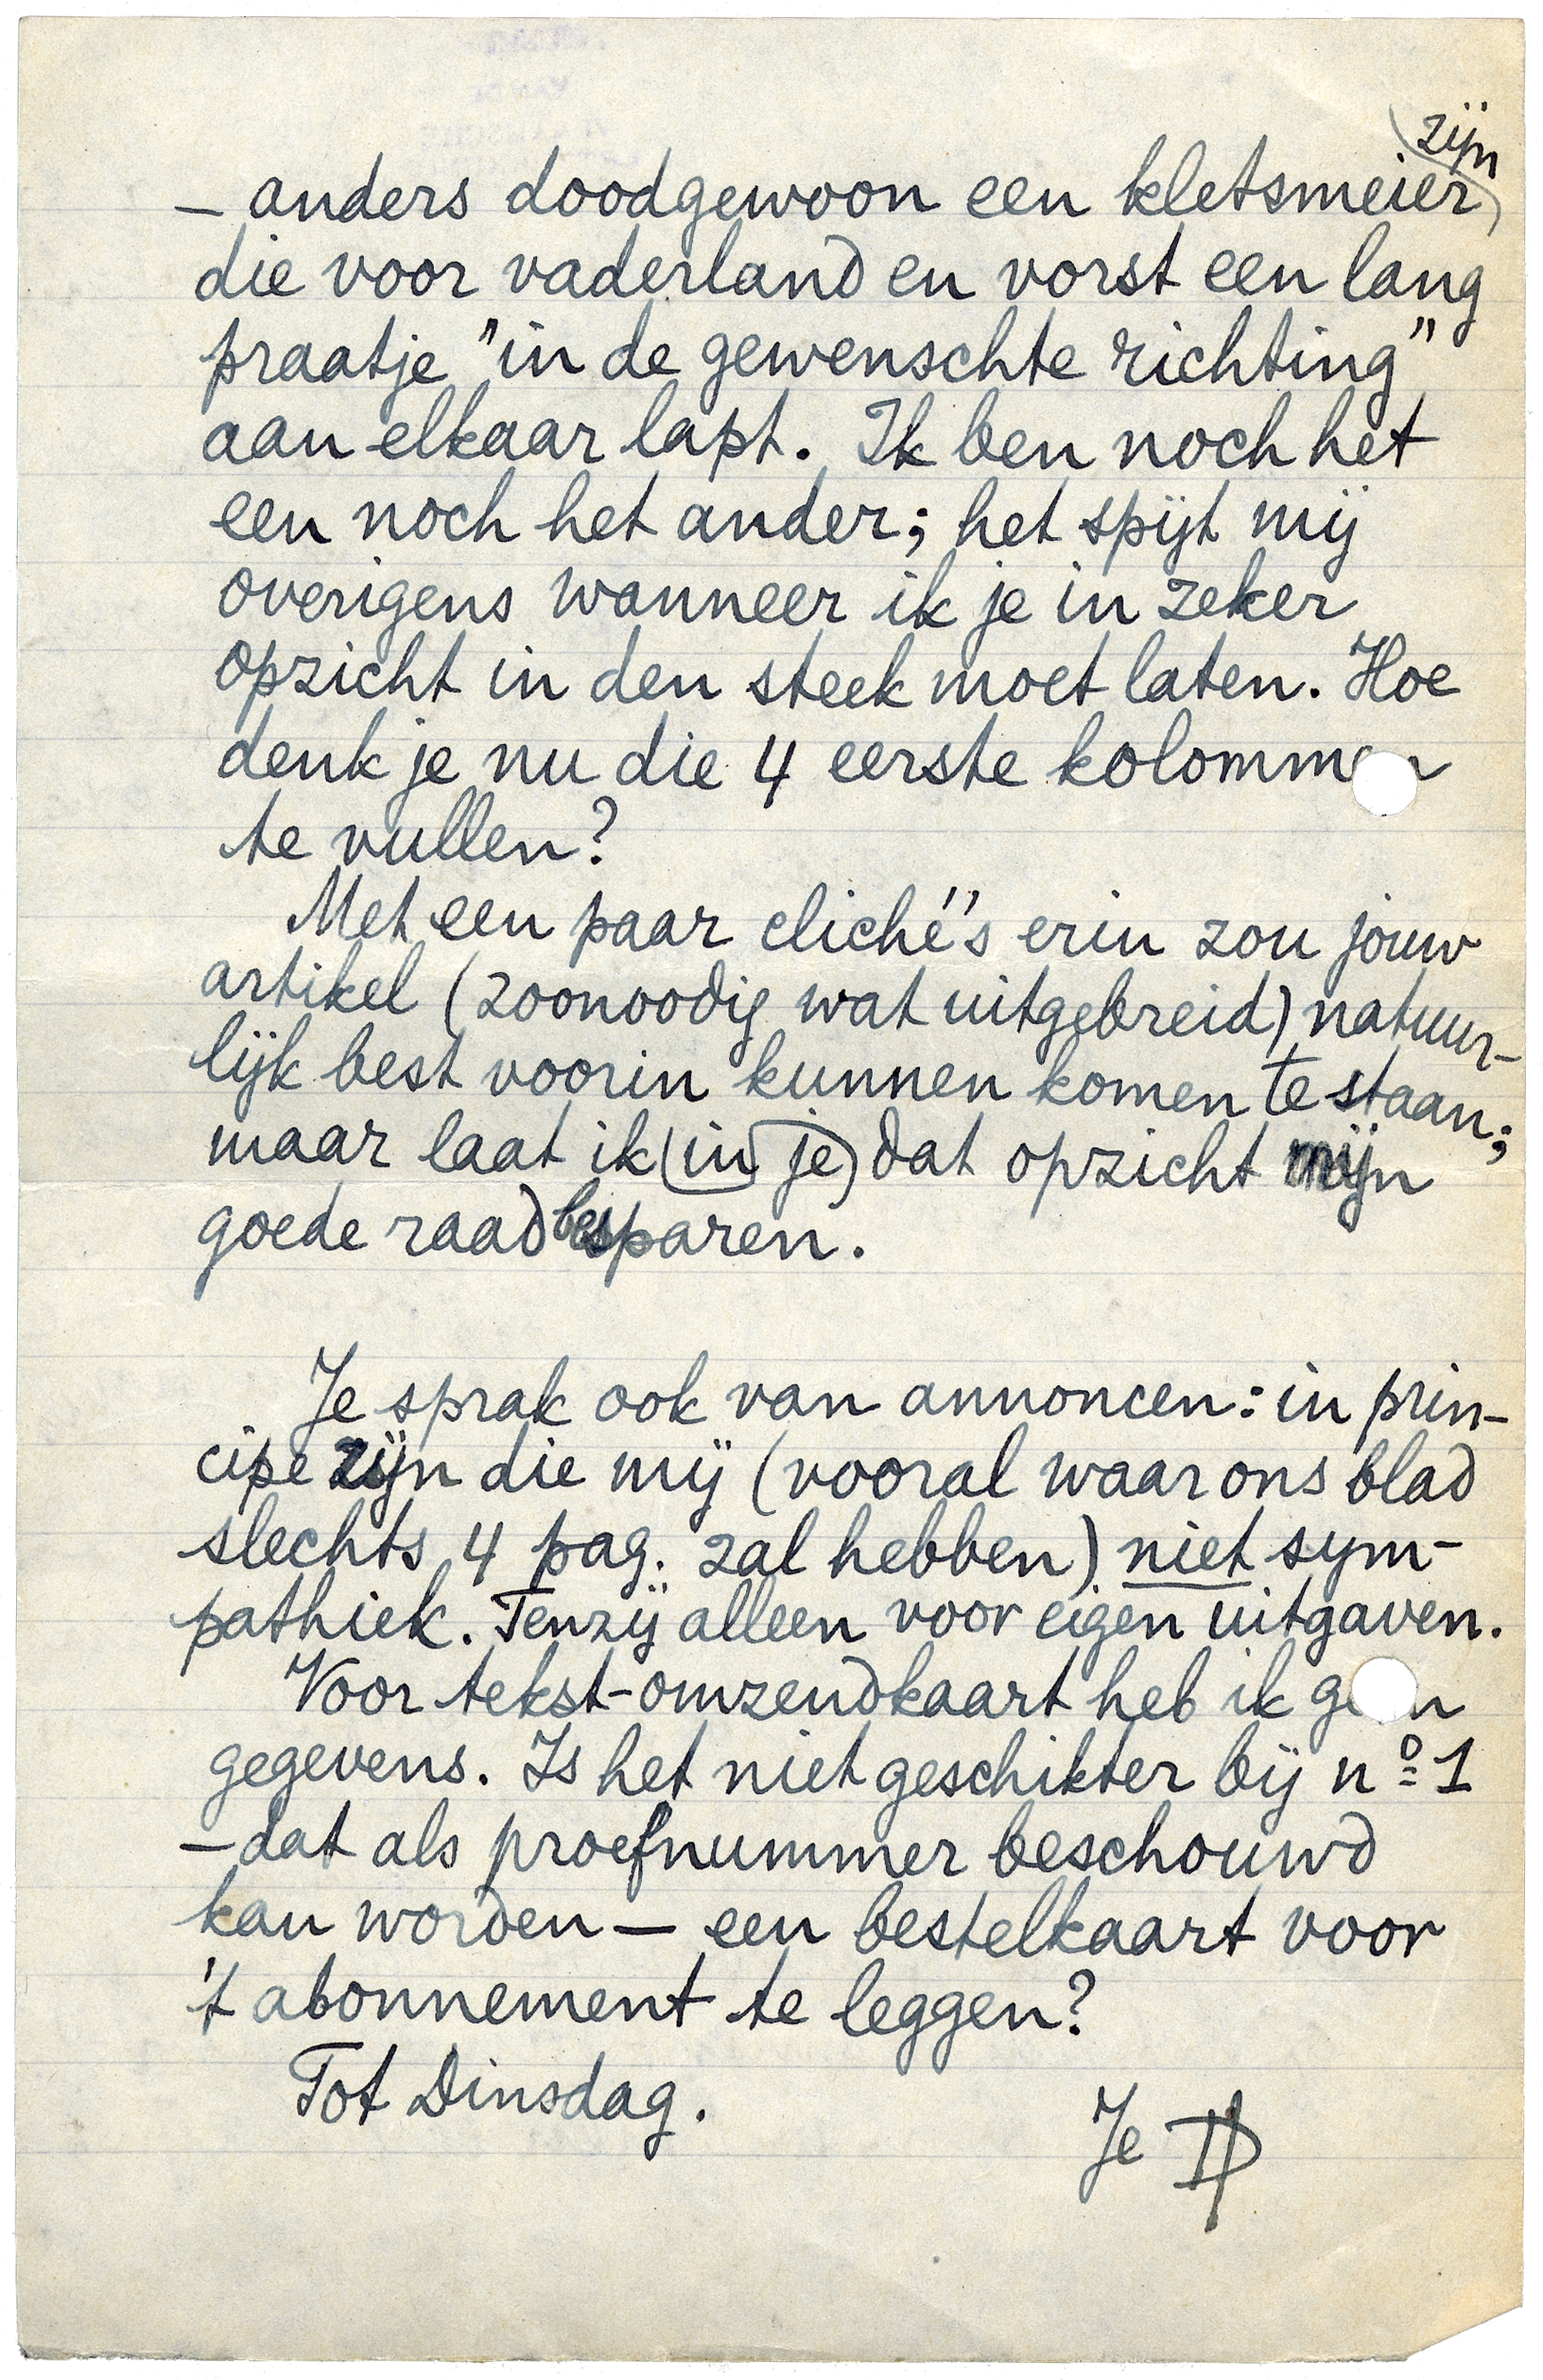 zijn
— anders doodgewoon een kletsmeier
die voor vaderland en vorst een lang
praatje "in de gewenschte richting"
aan elkaar lapt. Ik ben noch het
een noch het ander; het spijt mij
overigens wanneer ik je in zeker
opzicht in den steek moet laten. Hoe
denk je nu die 4 eerste kolommen
te vullen?
Met een paar cliché's erin zou jouw
artikel (zoonoodig wat uitgebreid) natuur-
lijk best voorin kunnen komen te staan;
maar laat ik in je dat opzicht mijn
goede raad besparen.
Je sprak ook van annoncen: in prin-
cipe zijn die mij (vooral waar ons blad
slechts 4 pag. zal hebben) niet sym-
pathiek. Tenzij alleen voor eigen uitgaven.
Voor tekst-omzendkaart heb ik geen
gegevens. Is het niet geschikter bij nº 1
— dat als proefnummer beschouwd
kan worden — een bestelkaart voor
't abonnement te leggen?
Tot Dinsdag.
Je